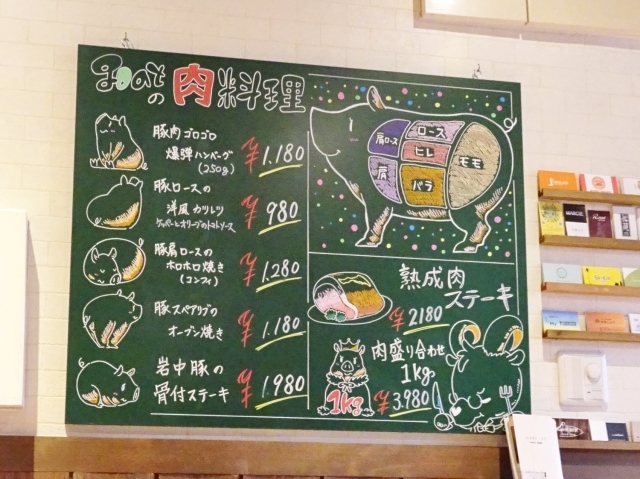 goatの肉料理
豚肉ゴロゴロ
爆弾ハンバーグ
(250g)
¥1.180
豚ロースの
洋風カツレツ
ケッパーとオリーブのトマトソース
¥980
豚肩ロースの
ホロホロ焼き
(コンフィ)
¥1.280
豚スペアリブの
オーブン焼き
¥1.180
岩中豚の
骨付ステーキ
¥1.980
肩ロース
ロース
ヒレ
肩
バラ
モモ
熟成肉
ステーキ
¥2180
肉盛り合わせ
1kg
¥3.980
1kg